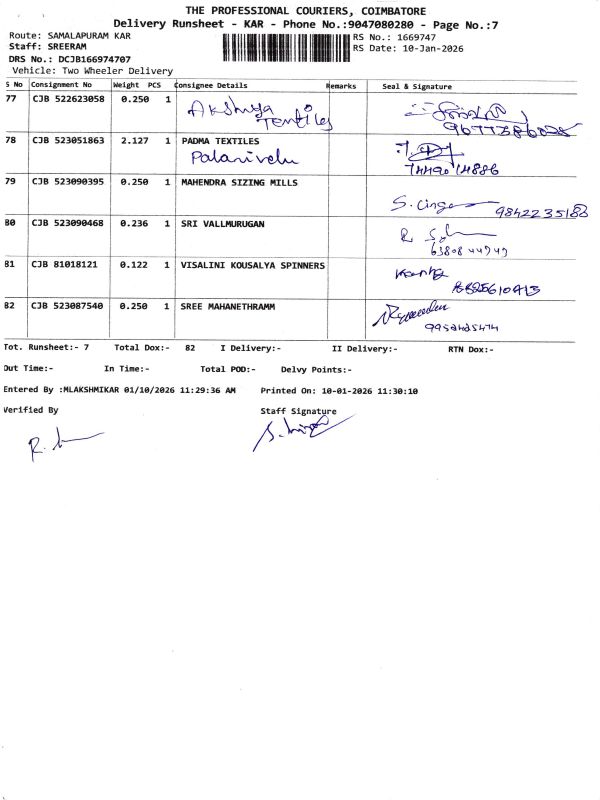 THE PROFESSIONAL COURIERS, COIMBATORE
Delivery Runsheet - KAR - Phone No.:9047080280 - Page No.:7
Route: SAMALAPURAM KAR RS No.: 1669747
Staff: SREERAM RS Date: 10-Jan-2026
DRS No.: DCJB166974707
Vehicle: Two Wheeler Delivery
S No Consignment No Weight PCS Consignee Details Remarks Seal & Signature
77 CJB 522623058 0.250 1 Akshya Textiles
78 CJB 523051863 2.127 1 PADMA TEXTILES
Palanivelu
79 CJB 523090395 0.250 1 MAHENDRA SIZING MILLS
9842235188
80 CJB 523090468 0.236 1 SRI VALLMURUGAN
81 CJB 81018121 0.122 1 VISALINI KOUSALYA SPINNERS
82 CJB 523087540 0.250 1 SREE MAHANETHRAMM
Tot. Runsheet:- 7 Total Dox:- 82 I Delivery:- II Delivery:- RTN Dox:-
Out Time:- In Time:- Total POD:- Delvy Points:-
Entered By :MLAKSHMIKAR 01/10/2026 11:29:36 AM Printed On: 10-01-2026 11:30:10
Verified By Staff Signature